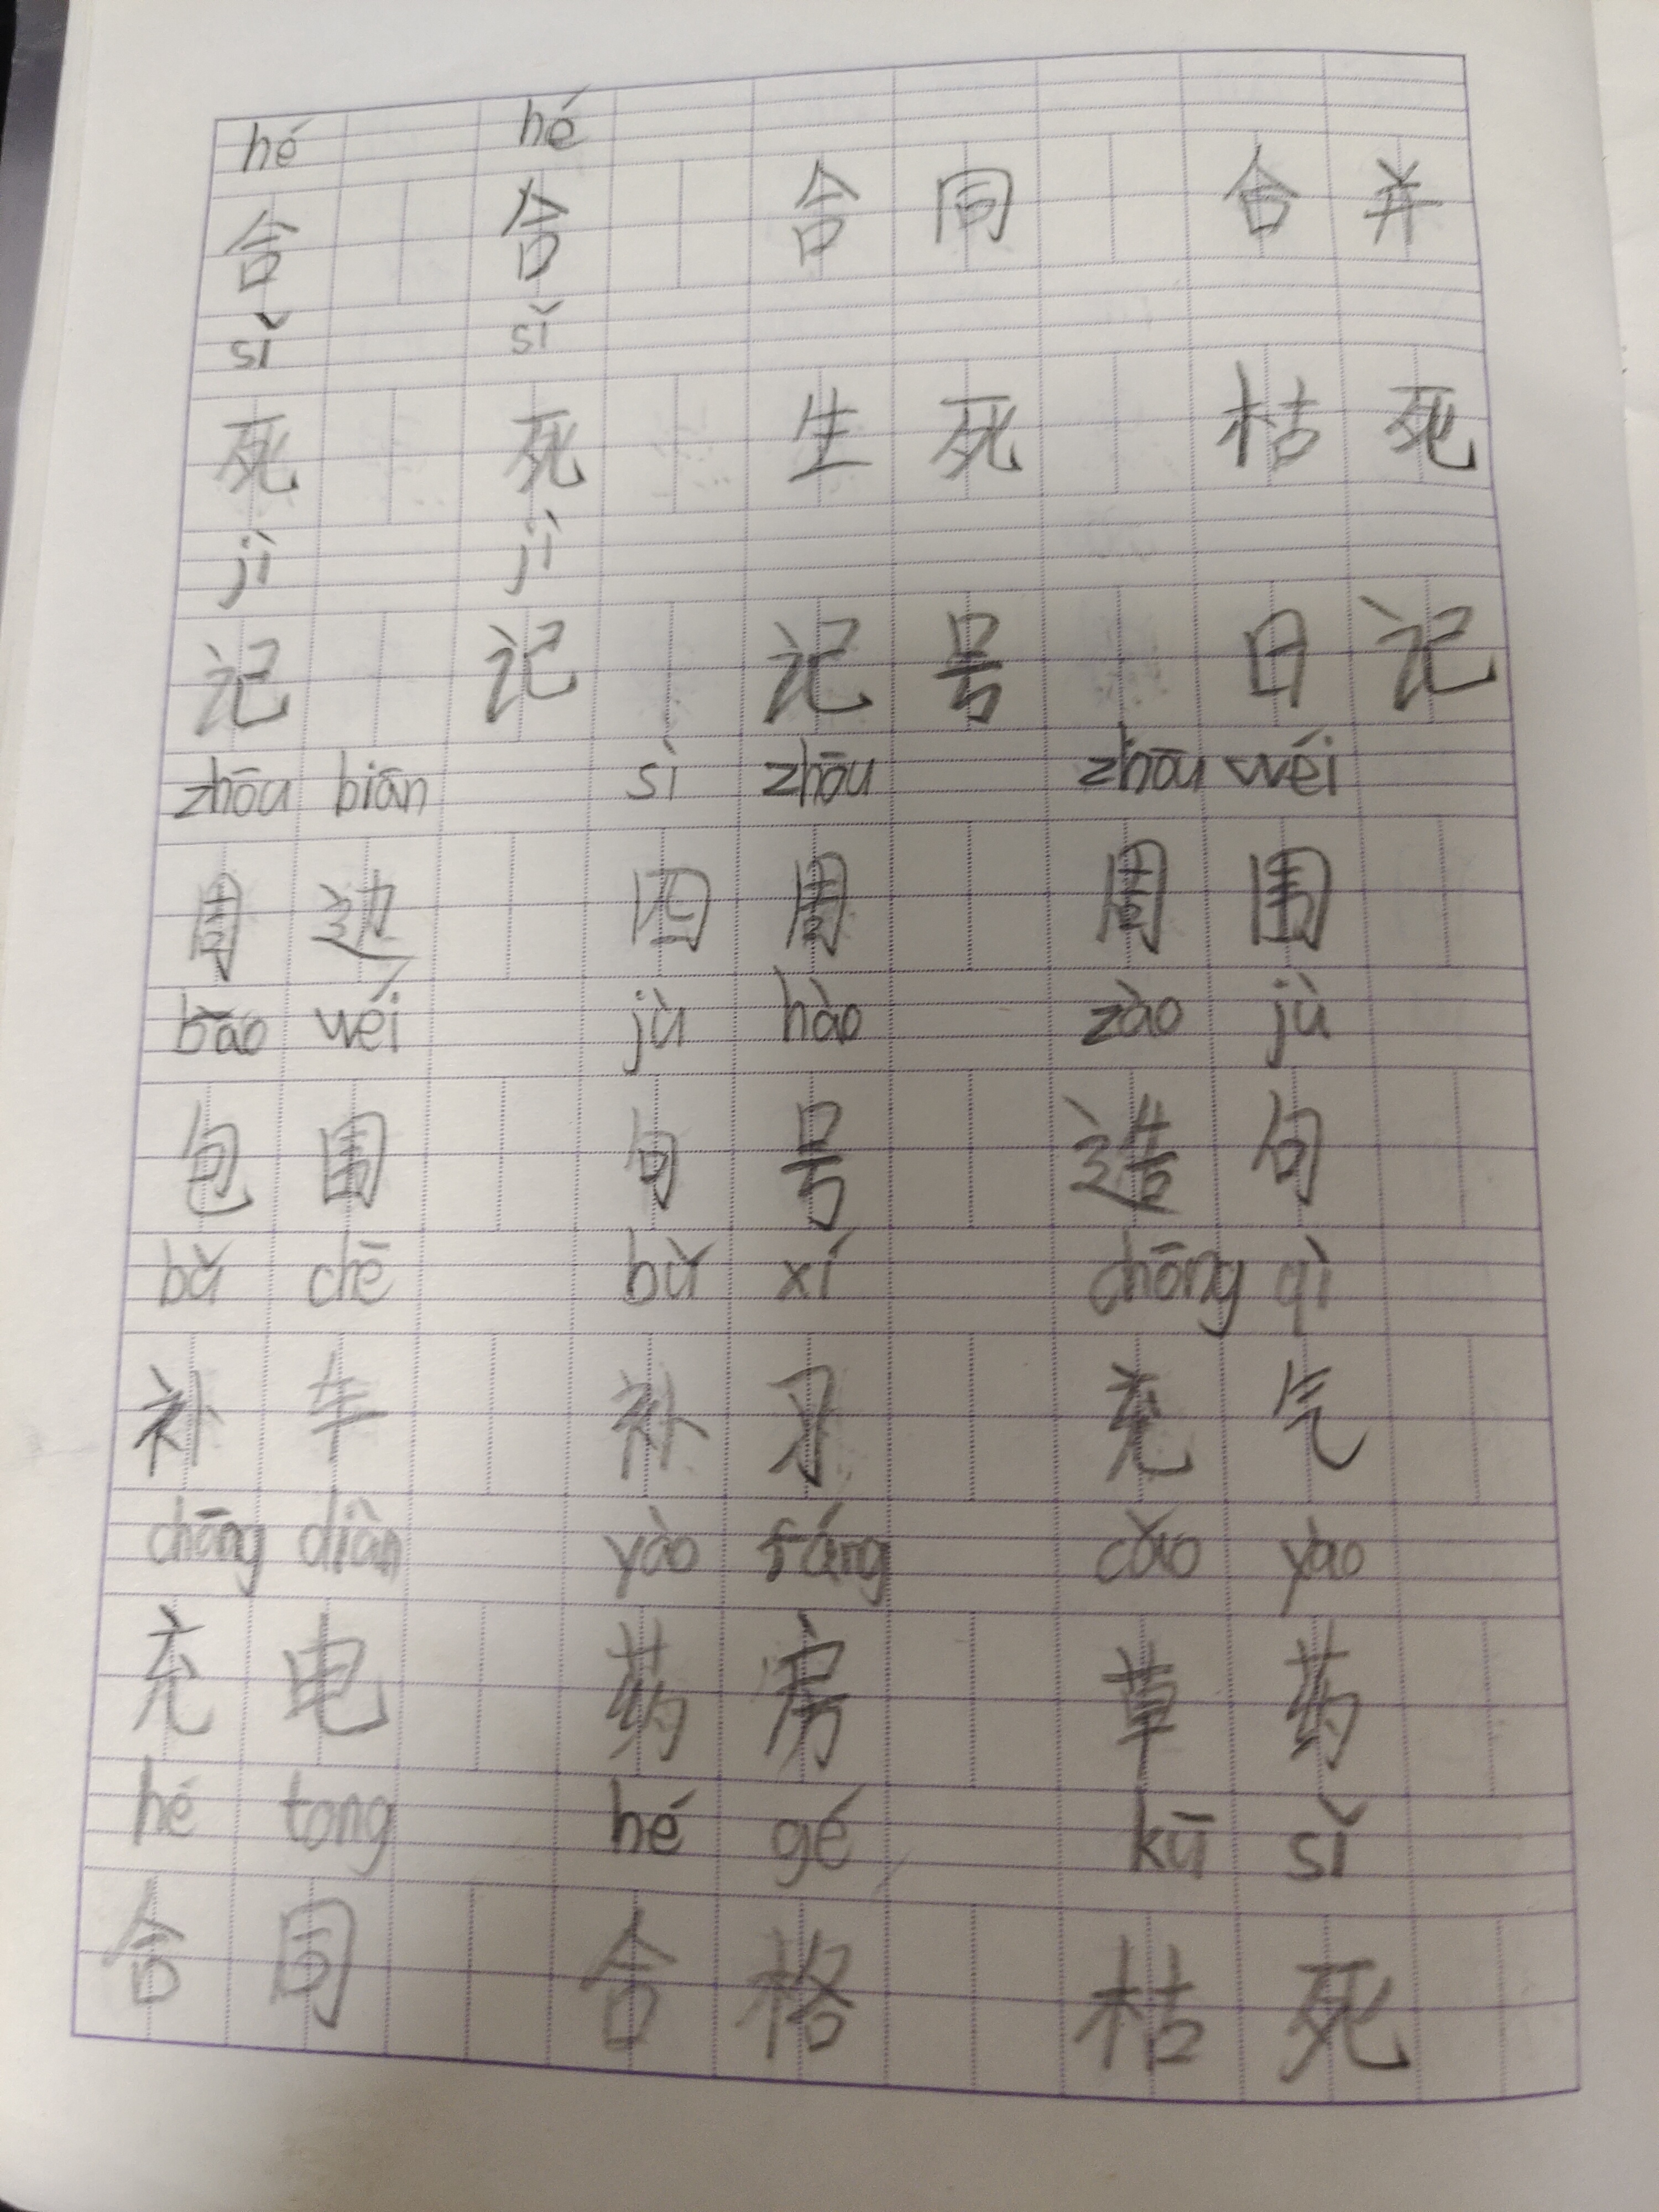 hé hé
合 合 合同 合并
sǐ sǐ
死 死 生死 枯死
jì jì
记 记 记号 日记
zhōu biān sì zhōu zhōu wéi
周边 四周 周围
bāo wéi jù hào zào jù
包围 句号 造句
bǔ chē bǔ xí chōng qì
补车 补习 充气
chōng diàn yào fáng cǎo yào
充电 药房 草药
hé tong hé gé kū sǐ
合同 合格 枯死